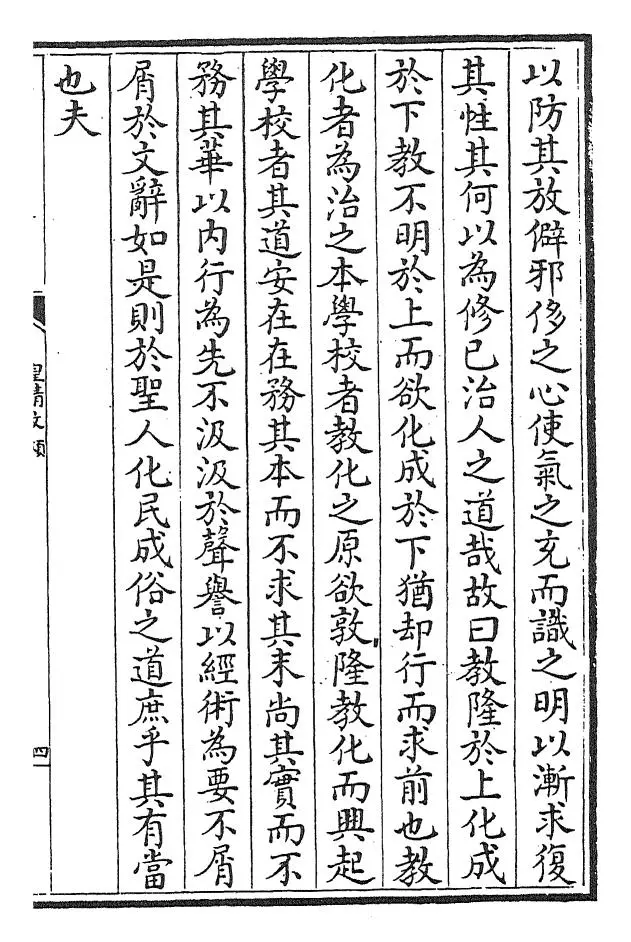 以防其放僻邪侈之心使氣之充而識之明以漸求復
其性其何以為修已治人之道哉故曰教隆於上化成
於下教不明於上而欲化成於下猶却行而求前也教
化者為治之本學校者教化之原欲敦隆教化而興起
學校者其道安在在務其本而不求其末尚其實而不
務其華以内行為先不汲汲於聲譽以經術為要不屑
屑於文辭如是則於聖人化民成俗之道庶乎其有當
也夫
皇清文穎
四